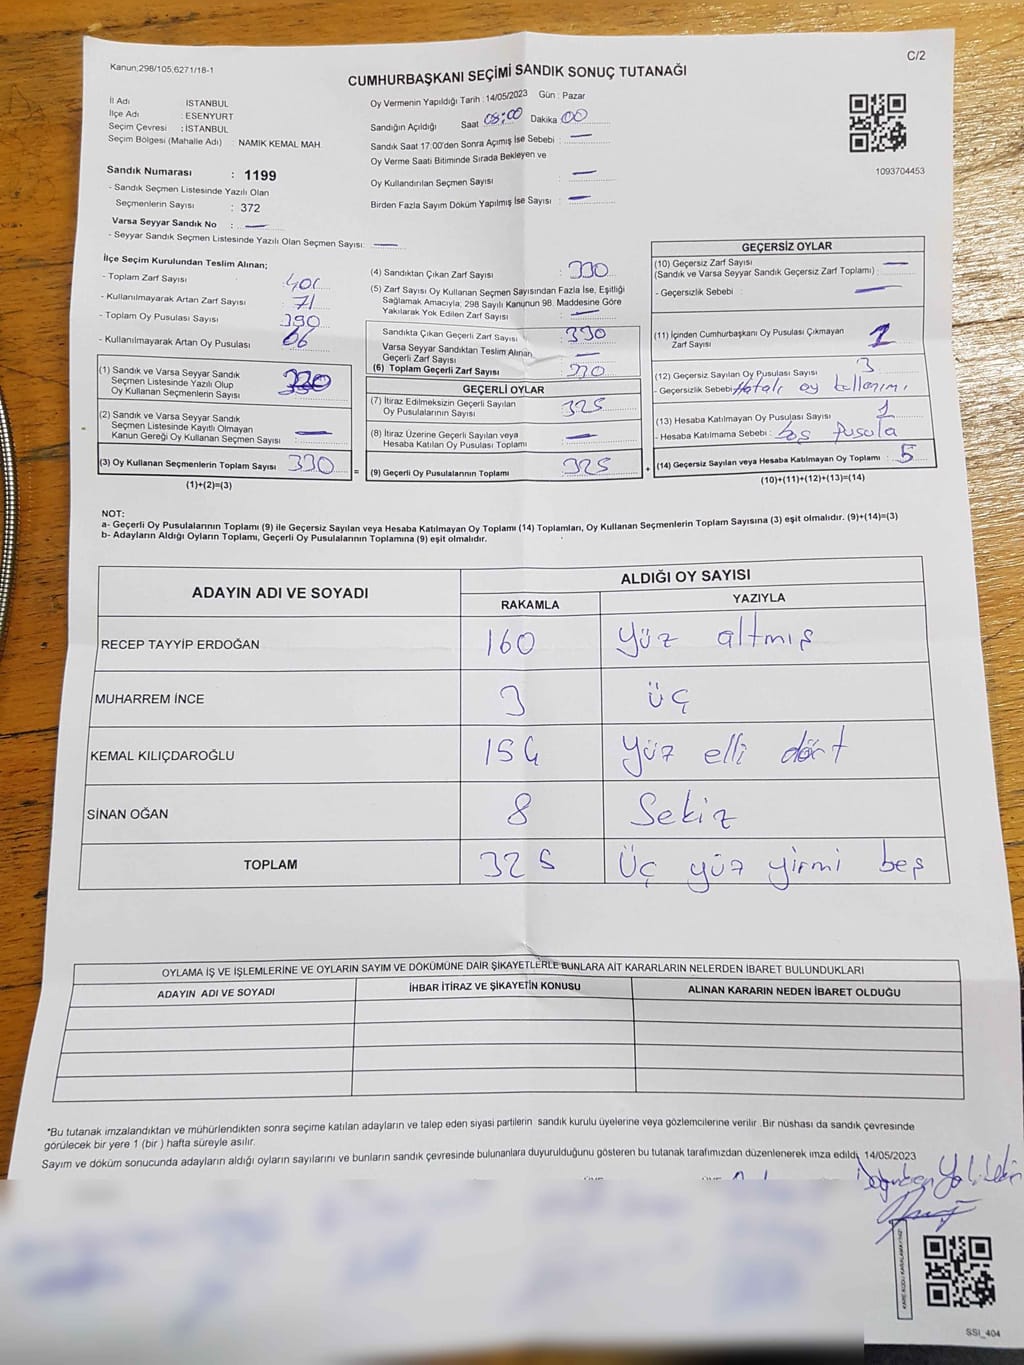 Kanun;298/105,6271/18-1
C/2
CUMHURBAŞKANI SEÇİMİ SANDIK SONUÇ TUTANAĞI
İl Adı : İSTANBUL
İlçe Adı : ESENYURT
Seçim Çevresi : İSTANBUL
Seçim Bölgesi (Mahalle Adı) : NAMIK KEMAL MAH.
Sandık Numarası : 1199
- Sandık Seçmen Listesinde Yazılı Olan
Seçmenlerin Sayısı : 372
Varsa Seyyar Sandık No : —
- Seyyar Sandık Seçmen Listesinde Yazılı Olan Seçmen Sayısı: —
Oy Vermenin Yapıldığı Tarih : 14/05/2023 Gün : Pazar
Sandığın Açıldığı Saat 08:00 Dakika 00
Sandık Saat 17:00'den Sonra Açımış İse Sebebi : —
Oy Verme Saati Bitiminde Sırada Bekleyen ve
Oy Kullandırılan Seçmen Sayısı : —
Birden Fazla Sayım Döküm Yapılmış İse Sayısı : —
1093704453
İlçe Seçim Kurulundan Teslim Alınan;
- Toplam Zarf Sayısı :
- Kullanılmayarak Artan Zarf Sayısı : 71
- Toplam Oy Pusulası Sayısı : 390
- Kullanılmayarak Artan Oy Pusulası :
(1) Sandık ve Varsa Seyyar Sandık
Seçmen Listesinde Yazılı Olup
Oy Kullanan Seçmenlerin Sayısı : 330
(2) Sandık ve Varsa Seyyar Sandık
Seçmen Listesinde Kayıtlı Olmayan
Kanun Gereği Oy Kullanan Seçmen Sayısı : —
(3) Oy Kullanan Seçmenlerin Toplam Sayısı : 330
(1)+(2)=(3)
(4) Sandıktan Çıkan Zarf Sayısı : 330
(5) Zarf Sayısı Oy Kullanan Seçmen Sayısından Fazla İse, Eşitliği
Sağlamak Amacıyla; 298 Sayılı Kanunun 98. Maddesine Göre
Yakılarak Yok Edilen Zarf Sayısı : —
Sandıkta Çıkan Geçerli Zarf Sayısı : 330
Varsa Seyyar Sandıktan Teslim Alınan
Geçerli Zarf Sayısı : —
(6) Toplam Geçerli Zarf Sayısı : 330
GEÇERLİ OYLAR
(7) İtiraz Edilmeksizin Geçerli Sayılan
Oy Pusulalarının Sayısı : 325
(8) İtiraz Üzerine Geçerli Sayılan veya
Hesaba Katılan Oy Pusulası Toplamı : —
(9) Geçerli Oy Pusulalarının Toplamı : 325
GEÇERSİZ OYLAR
(10) Geçersiz Zarf Sayısı
(Sandık ve Varsa Seyyar Sandık Geçersiz Zarf Toplamı) : —
- Geçersizlik Sebebi : —
(11) İçinden Cumhurbaşkanı Oy Pusulası Çıkmayan
Zarf Sayısı : 1
(12) Geçersiz Sayılan Oy Pusulası Sayısı : 3
- Geçersizlik Sebebi : Hatalı oy kullanımı
(13) Hesaba Katılmayan Oy Pusulası Sayısı : 1
- Hesaba Katılmama Sebebi : boş pusula
(14) Geçersiz Sayılan veya Hesaba Katılmayan Oy Toplamı : 5
(10)+(11)+(12)+(13)=(14)
NOT:
a- Geçerli Oy Pusulalarının Toplamı (9) ile Geçersiz Sayılan veya Hesaba Katılmayan Oy Toplamı (14) Toplamları, Oy Kullanan Seçmenlerin Toplam Sayısına (3) eşit olmalıdır. (9)+(14)=(3)
b- Adayların Aldığı Oyların Toplamı, Geçerli Oy Pusulalarının Toplamına (9) eşit olmalıdır.
ADAYIN ADI VE SOYADI ALDIĞI OY SAYISI
RAKAMLA YAZIYLA
RECEP TAYYİP ERDOĞAN 160 yüz altmış
MUHARREM İNCE 3 üç
KEMAL KILIÇDAROĞLU 154 yüz elli dört
SİNAN OĞAN 8 Sekiz
TOPLAM 325 Üç yüz yirmi beş
OYLAMA İŞ VE İŞLEMLERİNE VE OYLARIN SAYIM VE DÖKÜMÜNE DAİR ŞİKAYETLERLE BUNLARA AİT KARARLARIN NELERDEN İBARET BULUNDUKLARI
ADAYIN ADI VE SOYADI İHBAR İTİRAZ VE ŞİKAYETİN KONUSU ALINAN KARARIN NEDEN İBARET OLDUĞU
*Bu tutanak imzalandıktan ve mühürlendikten sonra seçime katılan adayların ve talep eden siyasi partilerin sandık kurulu üyelerine veya gözlemcilerine verilir .Bir nüshası da sandık çevresinde
görülecek bir yere 1 (bir ) hafta süreyle asılır.
Sayım ve döküm sonucunda adayların aldığı oyların sayılarını ve bunların sandık çevresinde bulunanlara duyurulduğunu gösteren bu tutanak tarafımızdan düzenlenerek imza edildi. 14/05/2023
SSI_404